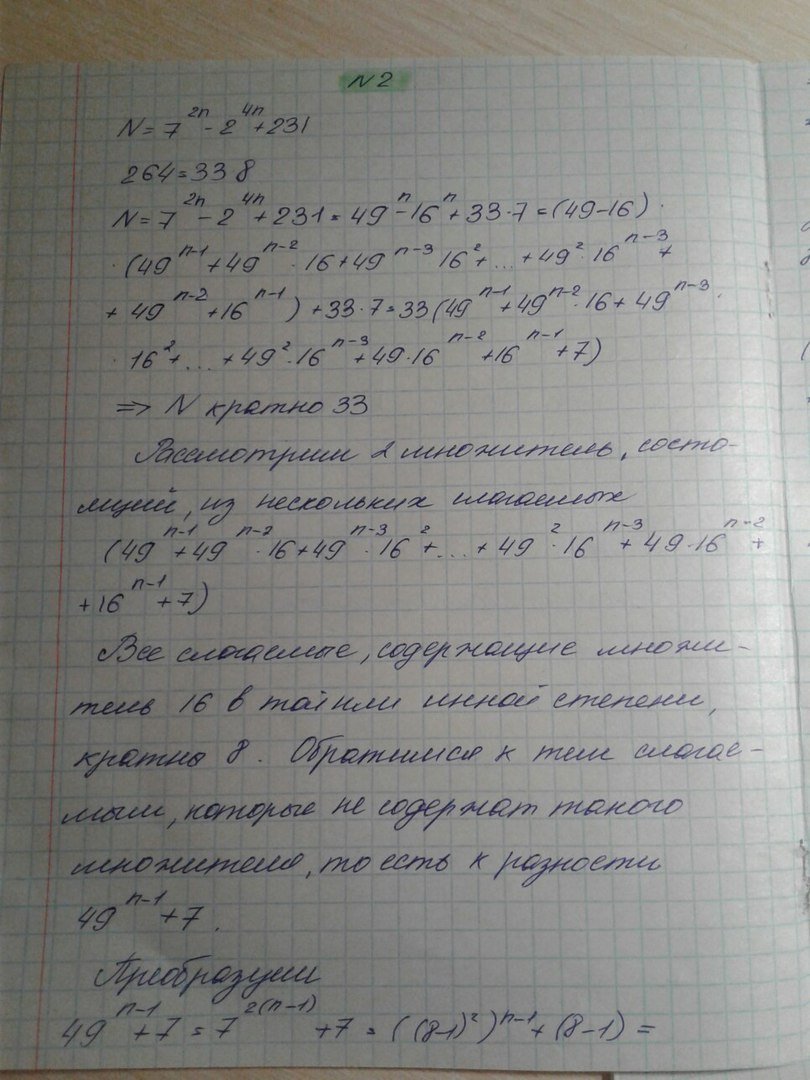 N2
N = 7^{2n} - 2^{4n} + 231
264 = 33 8
N = 7^{2n} - 2^{4n} + 231 = 49^n - 16^n + 33·7 = (49-16) ·
· (49^{n-1} + 49^{n-2} · 16 + 49^{n-3} 16^2 + ... + 49^2 · 16^{n-3} +
+ 49^{n-2} + 16^{n-1}) + 33·7 = 33 (49^{n-1} + 49^{n-2} · 16 + 49^{n-3} ·
· 16^2 + ... + 49^2 · 16^{n-3} + 49·16^{n-2} + 16^{n-1} + 7)
⇒ N кратно 33
Рассмотрим 2 множитель, состо-
ящий, из нескольких слагаемых
(49^{n-1} + 49^{n-2} · 16 + 49^{n-3} · 16^2 + ... + 49^2 · 16^{n-3} + 49·16^{n-2} +
+ 16^{n-1} + 7)
Все слагаемые, содержащие множи-
тель 16 в той или инной степени,
кратны 8. Обратимся к тем слагае-
мым, которые не содержат такого
множителя, то есть к разности
49^{n-1} + 7.
Преобразуем
49^{n-1} + 7 = 7^{2(n-1)} + 7 = ((8-1)^2)^{n-1} + (8-1) =